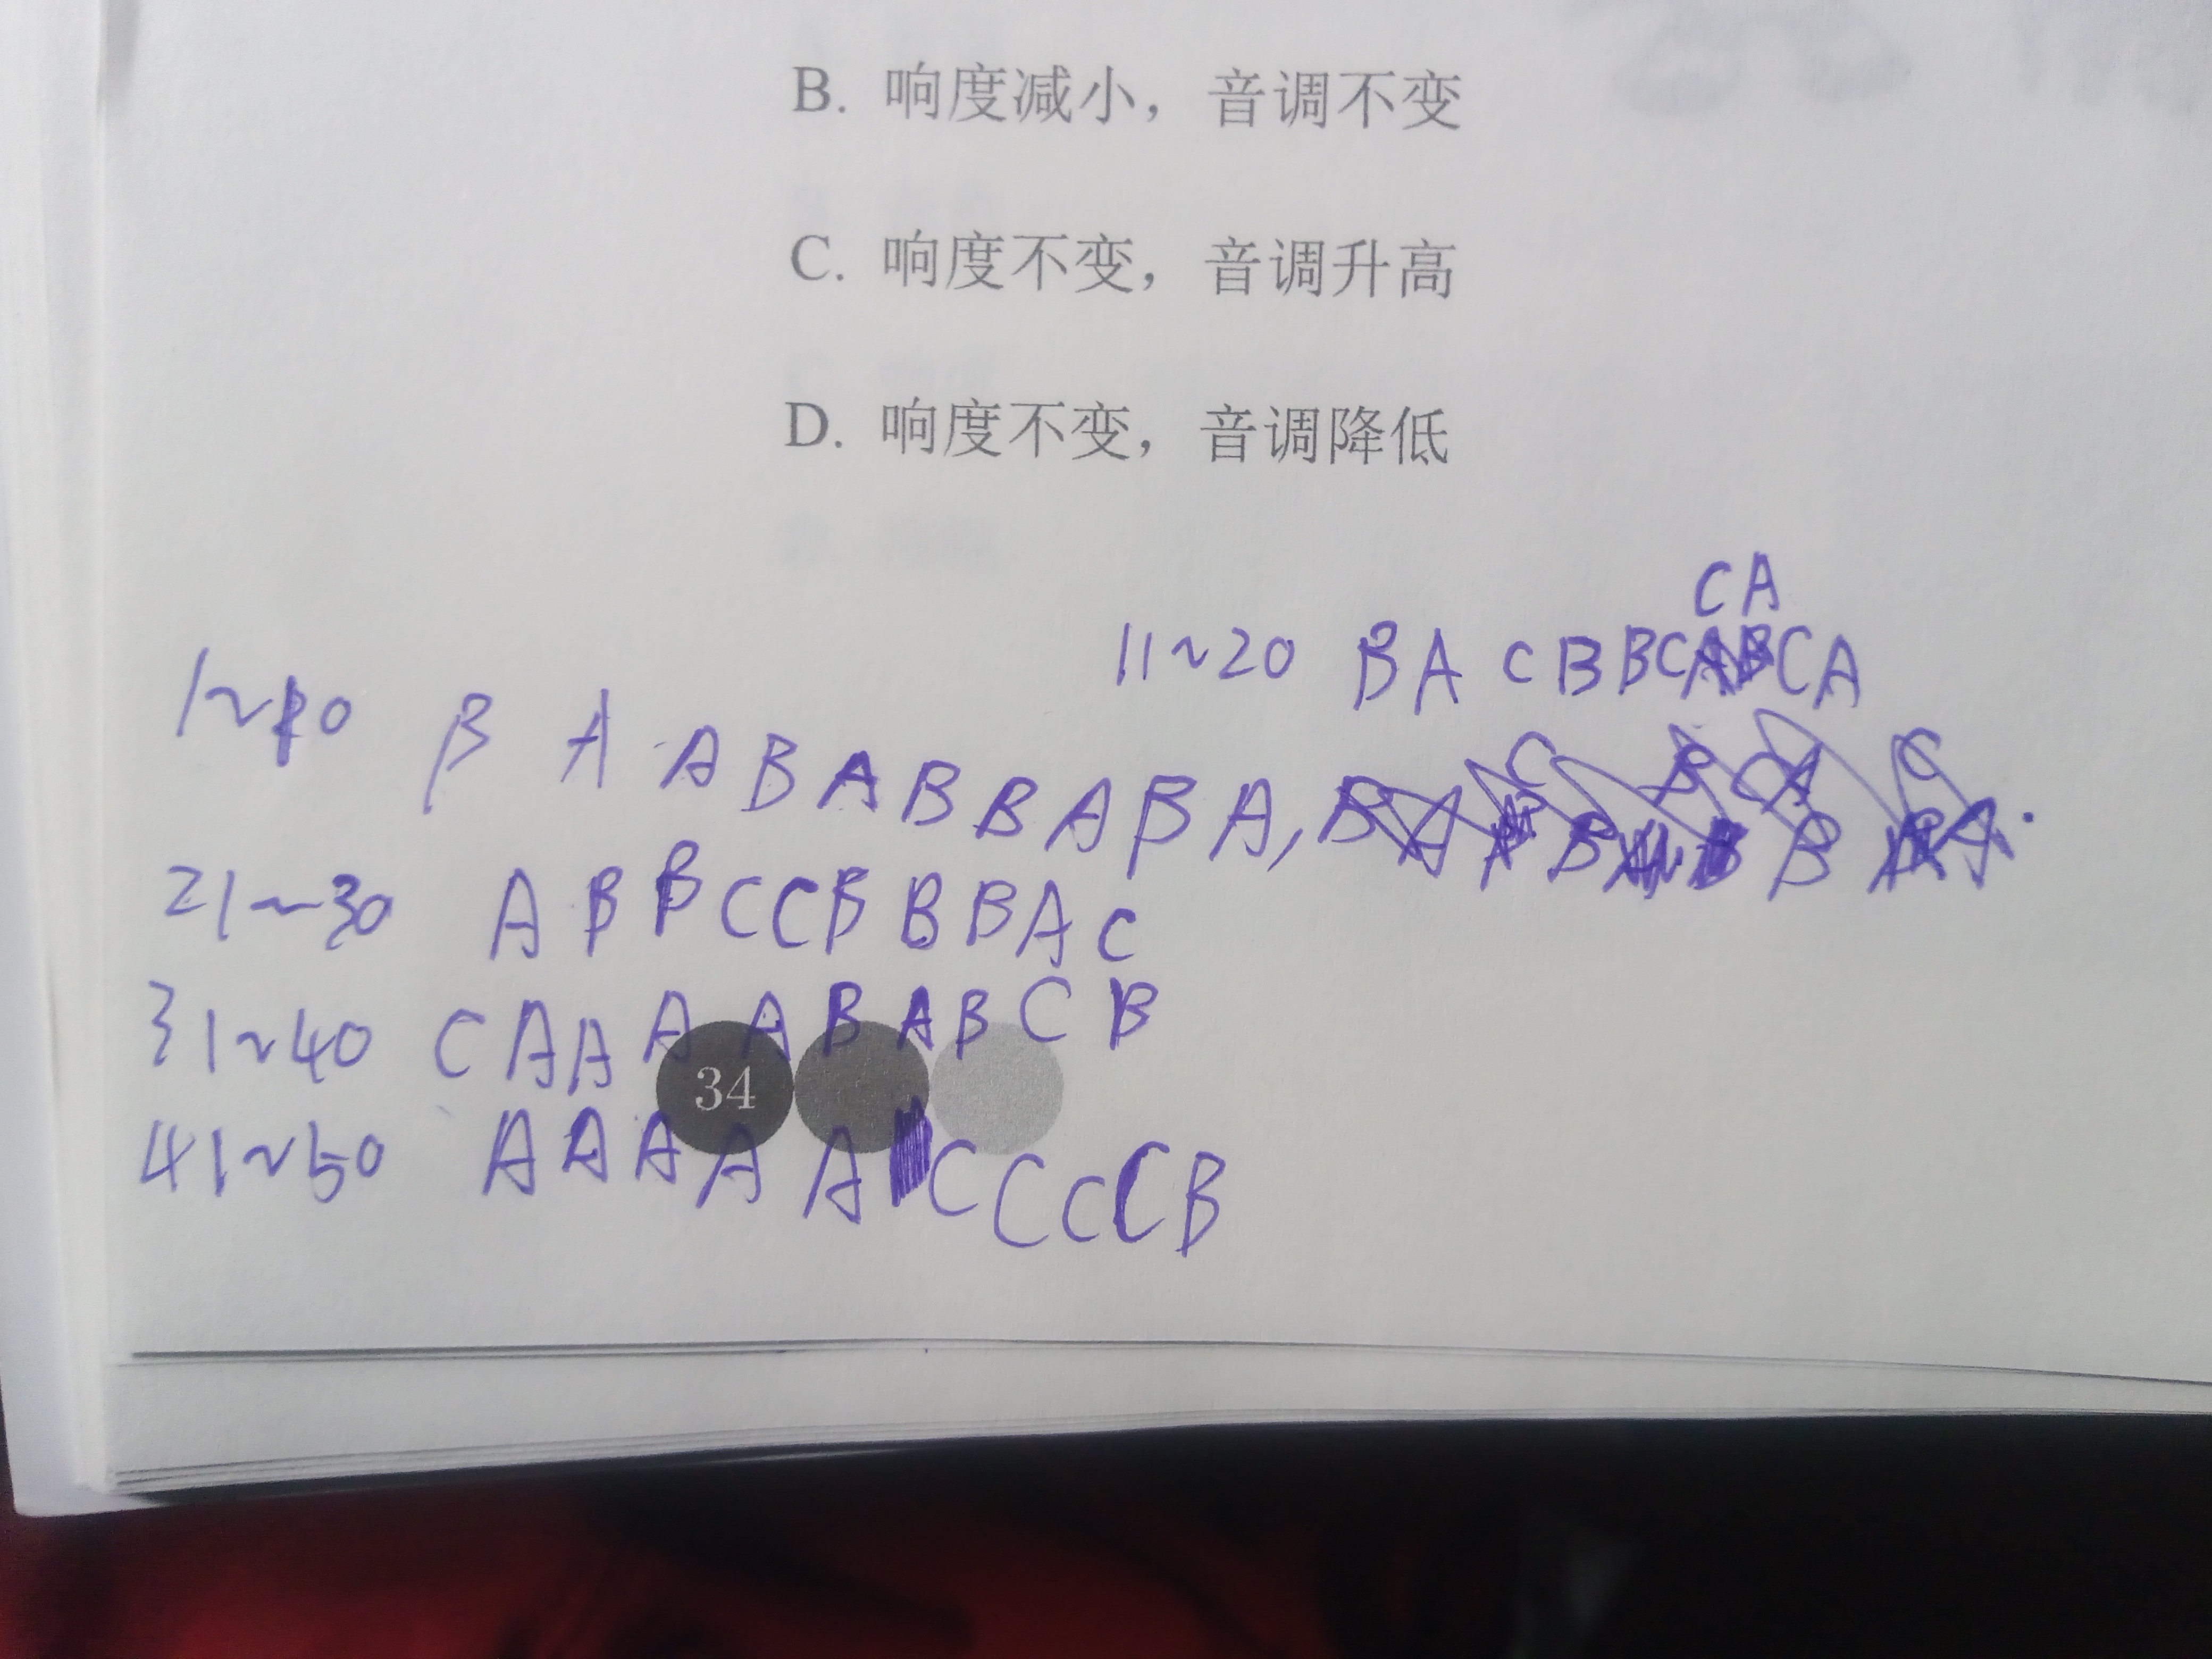 B. 响度减小，音调不变
C. 响度不变，音调升高
D. 响度不变，音调降低
CA
11~20 BA CBBC CA
1~10 B A A B A B B A B A,
21~30 A B B C C B B B A C
31~40 C A A A A B A B C B
34
41~50 A A A A A C C C C B